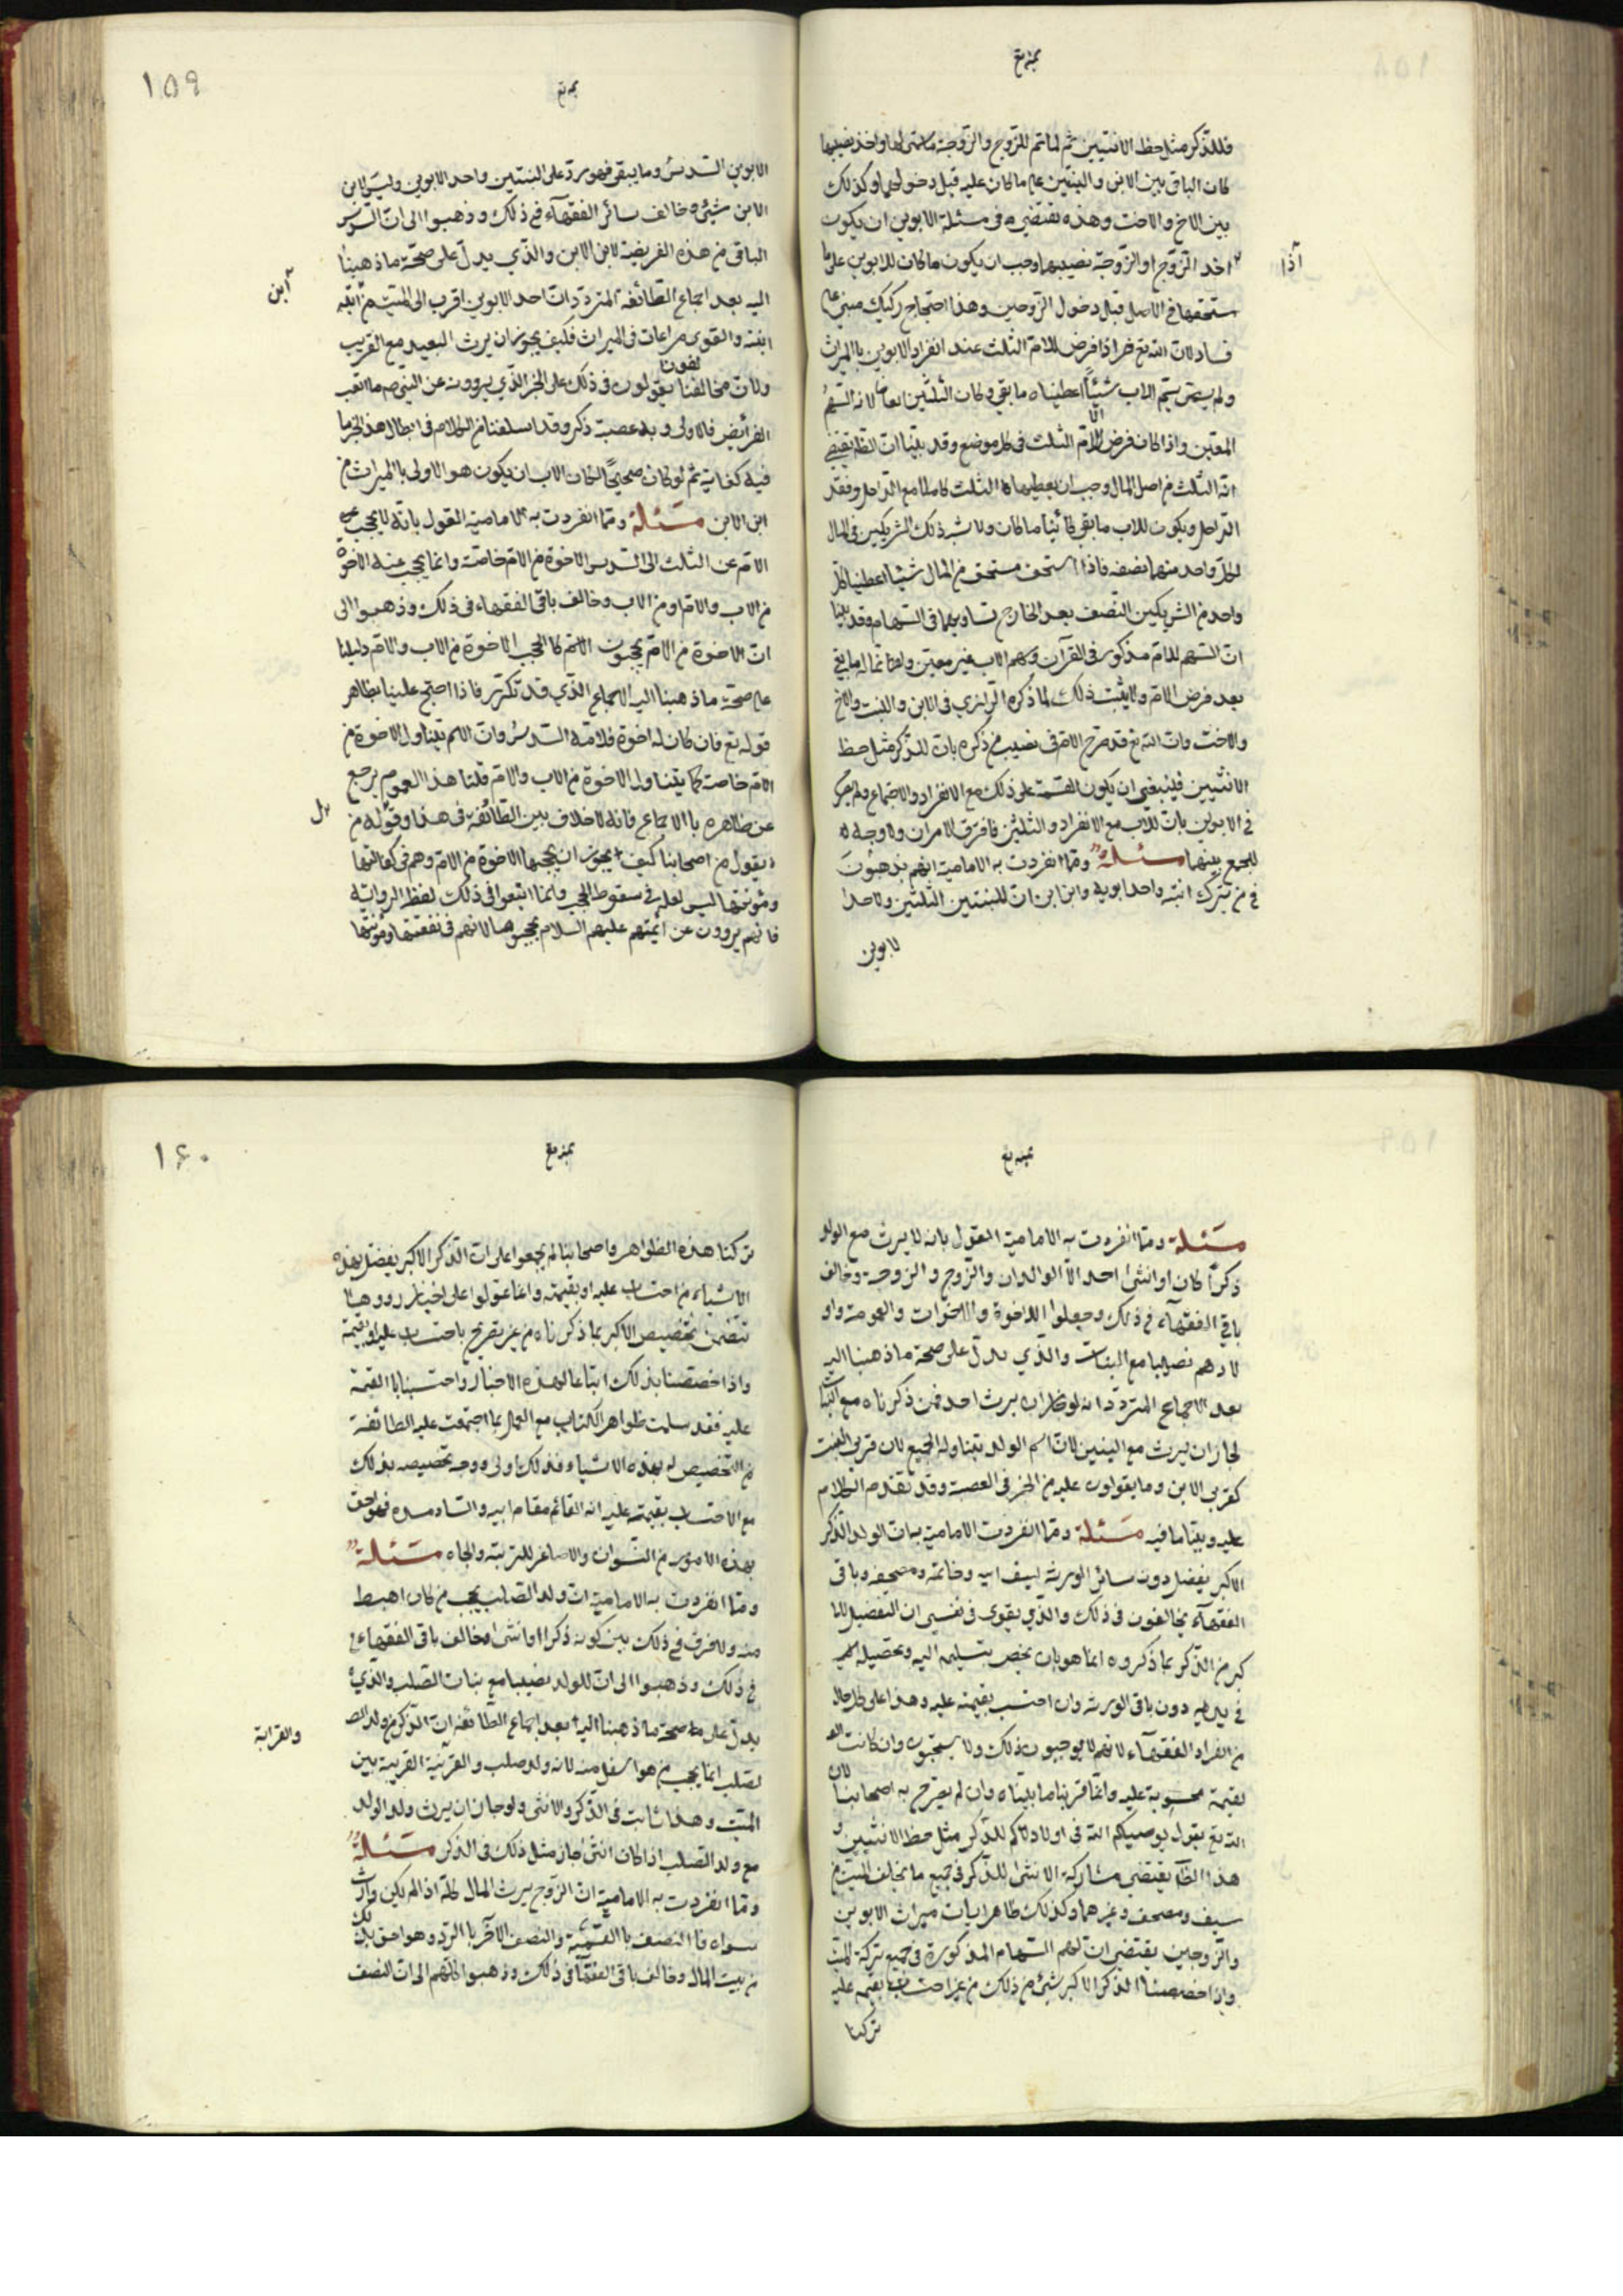 فللذكر مثل حظ الانثيين ثم لما تم للزوج والزوجة واخذ نصيبها
كان الباقى بين الابن والبنتين على ما كان عليه قبل دخولهما وكذلك
بين الاخ والاخت وهذه يقتضى فى مسئلة الابوين ان يكون
اخذ الزوج او الزوجة نصيبهما وجب ان يكون ما كان للابوين على ما
آذا
يستحقها فى الاصل قبل دخول الزوجين وهذا احتجاج ركيك مبنى على
فساد لان الله تع فرض للام الثلث عند انفراد الابوين بالميراث
ولم يسم للاب شيئاً اعطيناه ما بقى وكان الثلثين لانه السهم
المعين واذا كان فرض للام الثلث فى كل موضع وقد بينا ان يقتضى
انه الثلث من اصل المال وجب ان يعطيها الثلث كاملا مع الداخل وفقد
الداخل ويكون للاب ما بقى كائنا ما كان ولا شبه ذلك الشريكين فى المال
لكل واحد منهما نصفه فاذا استحق مستحق من المال شيئا اعطينا كل
واحد من الشريكين النصف بعد الخارج تساويهما فى السهام وقد بينا
ان السهم للام مذكور فى القرآن وسهم الاب غير معين وانما له ما بقى
بعد فرض الام ولا يثبت ذلك لما ذكره الرازى فى الابن والبنت والاخ
والاخت وان الله تع قد صرح الام فى نصيب من ذكره بان للذكر مثل حظ
الانثيين فينبغى ان يكون القسمة على ذلك مع الانفراد والاجتماع ولم يصرح
فى الابوين بان للاب مع الانفراد والثلثين فافترق الامران ولا وجه
للجمع بينهما مسئلة ومما انفردت به الامامية انهم يذهبون
فى من ترك ابنته واحد ابويه وابن ابن ان للبنتين الثلثين ولاحد
لابوين
١٥٩
الابوين السدس وما يبقى فهو رد على البنتين واحد الابوين وليس لابن
الابن شيئ وخالف سائر الفقهاء فى ذلك وذهبوا الى ان السدس
الباقى من هذه الفريضة لابن الابن والذى يدل على صحة ما ذهبنا
اليه بعد اجماع الطائفة المتردد ان احد الابوين اقرب الى الميت من
آبن
ابنه والقوى مراعات فى الميراث فكيف يجوز ان يرث البعيد مع القريب
ولان مخالفنا يقولون فى ذلك على الخبر الذى يروونه عن النبى ص ما ابقت
الفرائض فلاولى وبه عصبة ذكر وقد اسلفنا من الكلام فى ابطال هذا الخبر ما
فيه كفاية ثم لو كان صحيحاً لكان الاب ان يكون هو الاولى بالميراث من
ابن الابن مسئلة ومما انفردت به الامامية القول بانه لا يحجب
الام عن الثلث الى السدس الاخوة من الام خاصة وانما يحجب عنه الاخوة
من الاب والام او من الاب وخالف باقى الفقهاء فى ذلك وذهبوا الى
ان الاخوة من الام يحجبون الام كما يحجب الاخوة من الاب والام دليلنا
على صحة ما ذهبنا اليه الاجماع الذى قد تكرر فاذا احتج علينا بظاهر
قوله تع فان كان له اخوة فلامه السدس وان الاسم يتناول الاخوة من
الام خاصة كما يتناول الاخوة من الاب والام قلنا هذا العموم يرجع
عن ظاهره بالاجماع فانه لا خلاف بين الطائفة فى هذا وقوله من
يقول من اصحابنا كيف يجوز ان يحجبها الاخوة من الام وهم فى كفالتها
ومؤنتها ليس لعلة فى سقوط الحجب وانما اتبعوا فى ذلك لفظ الرواية
فانهم يروون عن ائمتهم عليهم السلام لانهم فى نفقتها ومؤنتها
مسئلة ومما انفردت به الامامية القول بانه لا يرث مع الولد
ذكراً كان او انثى احد الا الوالدان والزوج والزوجة وخالف
باقى الفقهاء فى ذلك وجعلوا للاخوة والاخوات والعمومة واو
لادهم نصيبا مع البنات والذى يدل على صحة ما ذهبنا اليه
بعد الاجماع المتردد انه لو جاز ان يرث احد ممن ذكرناه مع البنات
لجاز ان يرث مع البنين لان اسم الولد يتناول الجميع لان قربى البنت
كقربى الابن وما يقولون عليه من الخبر فى العصبة وقد تقدم الكلام
عليه وبينا ما فيه مسئلة ومما انفردت الامامية به ان الولد الذكر
الاكبر يفضل دون سائر الورثة بسيف ابيه وخاتمه ومصحفه وباقى
الفقهاء يخالفون فى ذلك والذى يقوى فى نفسى ان التفضيل للا
كبر من الذكر بما ذكروه انما هو بان يخص بتسليمه اليه وتحصيله
فى يديه دون باقى الورثة وان احتسب بقيمته عليه وهذا على كل حال
من انفراد الفقهاء لانهم لا يوجبون ذلك ولا يستحبون وان كانت
لقيمة محسوبة عليه وانما قربنا ما بيناه وان لم يصرح به اصحابنا لان
الله تع يقول يوصيكم الله فى اولادكم للذكر مثل حظ الانثيين و
هذا يقتضى مشاركة الانثى للذكر فى جميع ما يخلف الميت من
سيف ومصحف وغيرهما وكذلك ظاهر ايات ميراث الابوين
والزوجين يقتضى ان لهم السهام المذكورة فى جميع تركة الميت
واذا خصصنا الذكر الاكبر بشئ من ذلك من غير احتساب بقيمه عليه
تركنا
١٦٠
تركنا هذه الظواهر واصحابنا لم يجمعوا على ان الذكر الاكبر يفضل بهذه
الاشياء من احتساب عليه او بقيمته وانما عولوا على اخبار رووها
تتضمن تخصيص الاكبر بما ذكرناه من غير تصريح باحتساب عليه او بقيمة
واذا خصصنا بذلك اتباعا لهذه الاخبار واحتسبنا بالقيمة
عليه فقد سلمت ظواهر الكتاب مع العمل بما اجتمعت عليه الطائفة
من التخصيص له بهذه الاشياء فذلك اولى ووجه تخصيصه بذلك
مع الاحتساب بقيمته عليه انه القائم مقام ابيه والساد مسده فهو احق
بهذه الامور من النسوان والاصاغر للتربية والجاه مسئلة
ومما انفردت به الامامية ان ولد الصلب يحجب من كان اهبط
منه ولا فرق فى ذلك بين كونه ذكرا او انثى وخالف باقى الفقهاء
فى ذلك وذهبوا الى ان للولد نصيبا مع بنات الصلب والذى
يدل على صحة ما ذهبنا اليه بعد اجماع الطائفة ان الذكر من ولد الصـ
لصلب انما يحجب من هو اسفل منه لانه ولد صلب والقرينة القريبة بين
والقرابة
الميت وهذا ثابت فى الذكر والانثى ولو جاز ان يرث ولد الولد
مع ولد الصلب اذا كان انثى لجاز مثل ذلك فى الذكر مسئلة
ومما انفردت به الامامية ان الزوج يرث المال كله اذا لم يكن وارث
سواه فالنصف بالتسمية والنصف الآخر بالرد وهو احق بذلك
من بيت المال وخالف باقى الفقهاء فى ذلك وذهبوا كلهم الى ان النصف